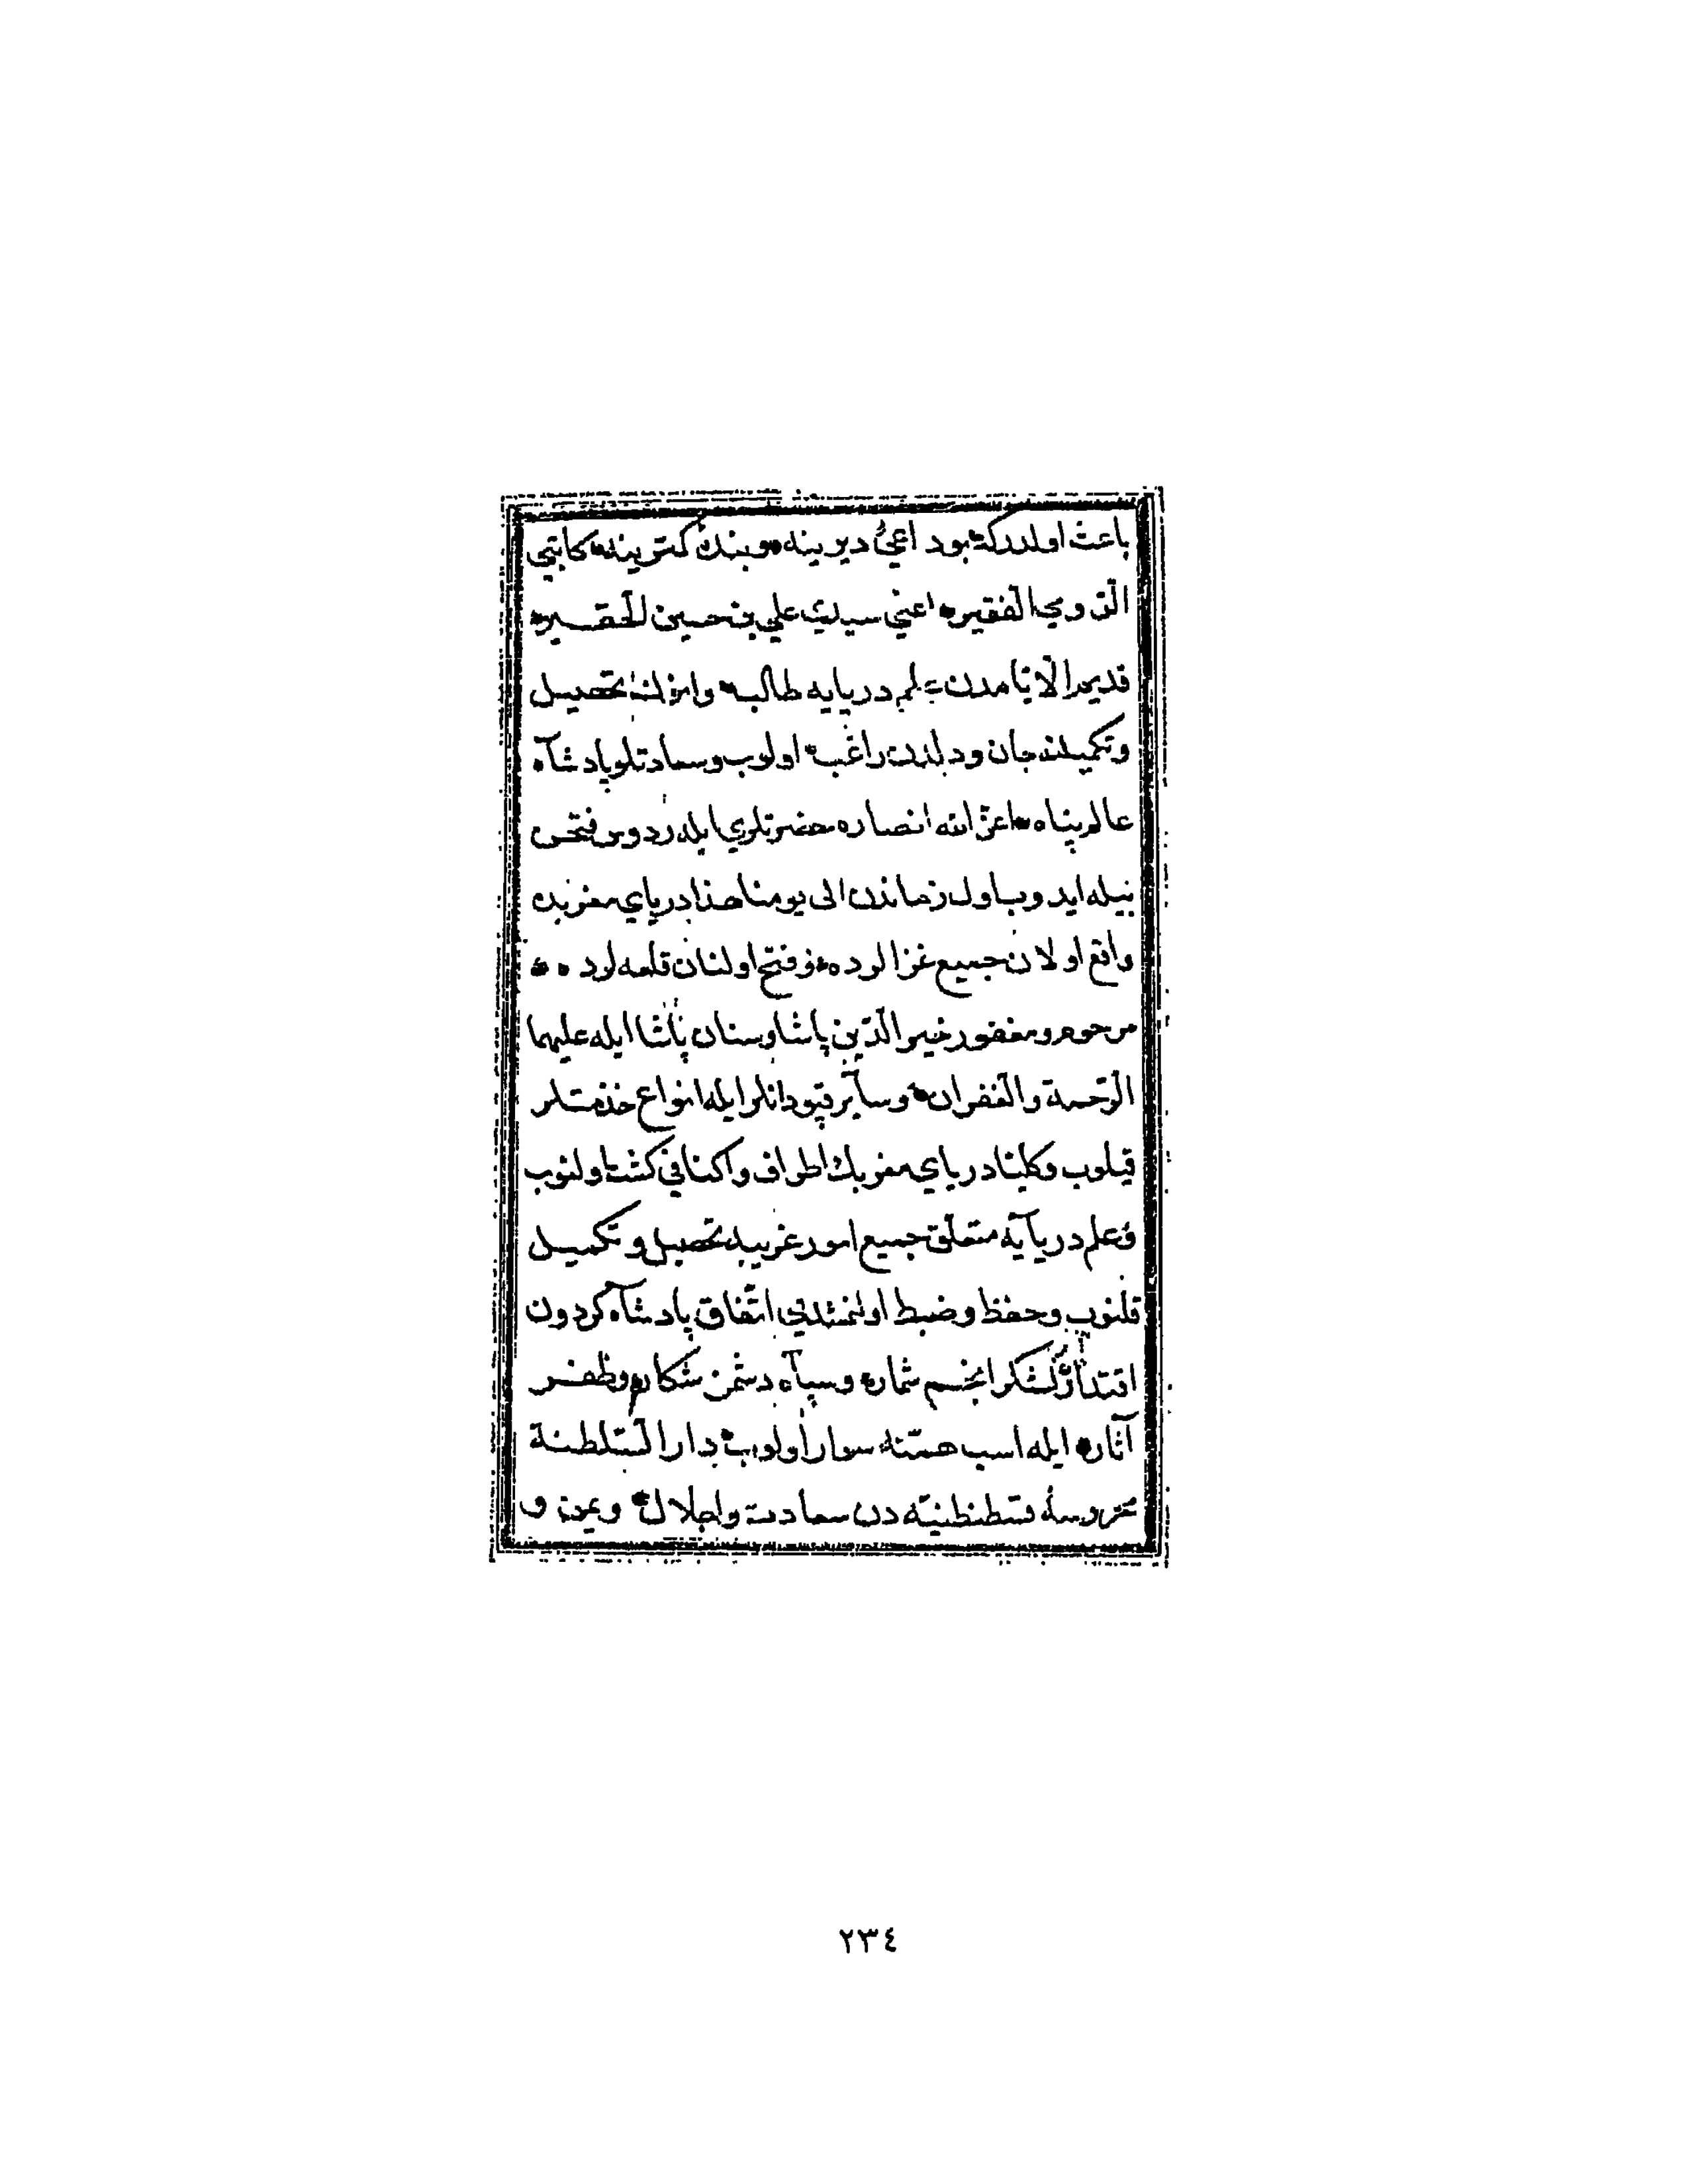 باعث اولدركه بو داعئ ديرينه وبندۀ كمترينه كاتبي
الرّومي الفقير اعني سيدي علي بن حسين الحقير
قديم الايّامدن علم دريايه طالب وانوك تحصيل
وتكميلنه جان ودلدن راغب اولوب وسعادتلو پادشاه
عالم پناه اعزّ الله انصاره حضرتلري ايله ردوس فتحن
بيله ايدوب اول زماندن الى يومنا هذا درياي مغربده
واقع اولان جميع غزالرده وفتح اولنان قلعه لرده
مرحوم ومغفور خير الدّين پاشا وسنان پاشا ايله عليهما
الرّحمة والغفران وسائر قپودانلر ايله انواع خذمتلر
قيلوب وكليّا درياي مغربك اطراف واكنافي كشت اولنوب
وعلم دريايه متعلّق جميع امور غريبه تحصيل وتكميل
قلنوب وحفظ وضبط اولنمشدي اتّفاق پادشاه كردون
اقتدار لشكر انجم شمار وسپاه دشمن شكار وظفر
آثار ايله اسب همّته سوار اولوب دار السّلطنة
محروسۀ قسطنطنيّه دن سعادت واجلال ويمن و
٢٣٤